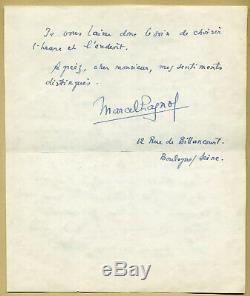 Je vous laisse donc le soin de choisir
l'heure et l'endroit.
Agréez, cher monsieur, mes sentiments
distingués.
Marcel Pagnol
12 Rue de Billancourt
Boulogne/Seine.